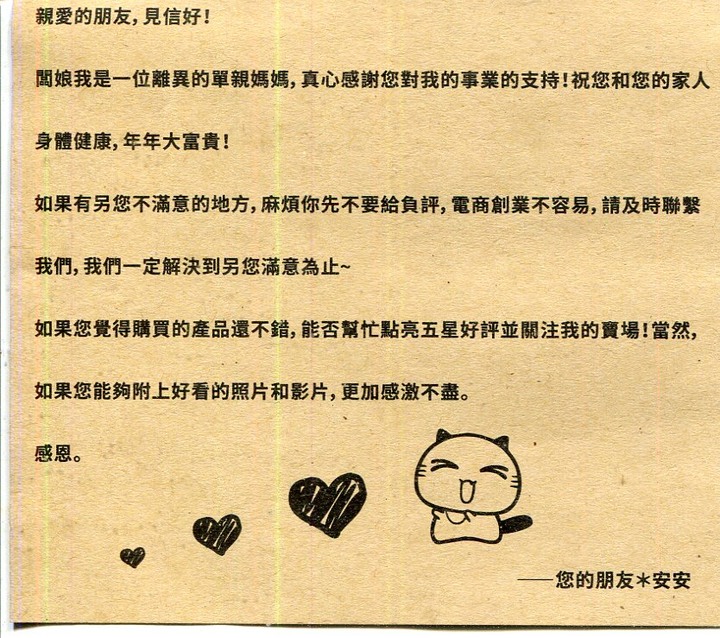 親愛的朋友，見信好！
闆娘我是一位離異的單親媽媽，真心感謝您對我的事業的支持！祝您和您的家人
身體健康，年年大富貴！
如果有另您不滿意的地方，麻煩你先不要給負評，電商創業不容易，請及時聯繫
我們，我們一定解決到另您滿意為止~
如果您覺得購買的產品還不錯，能否幫忙點亮五星好評並關注我的賣場！當然，
如果您能夠附上好看的照片和影片，更加感激不盡。
感恩。
——您的朋友＊安安